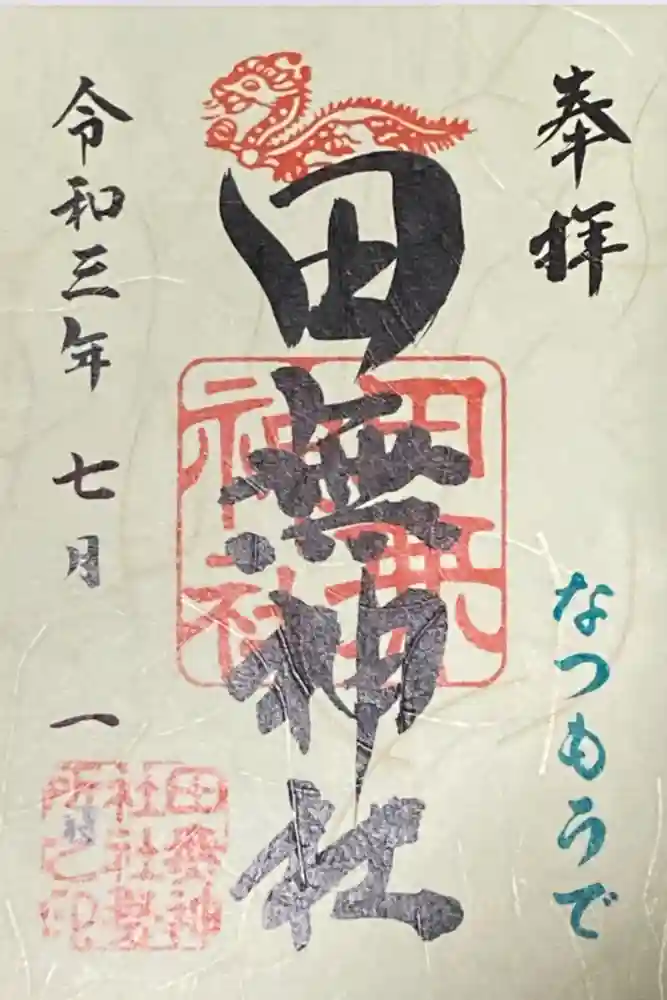 奉拝
なつもうで
田無神社
田無神社
令和三年 七月 一
田無神社社務所之印